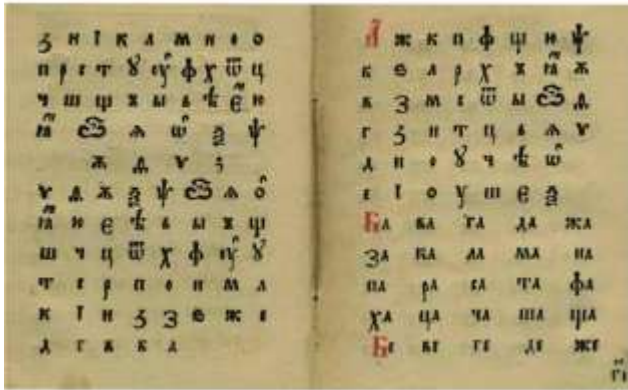 з и ї к л м н о ѻ
п р с т ꙋ ѹ ф х ѿ ц
ч ш щ ъ ы ь ѣ є ю
ꙗ ѽ ѧ ѡ ѯ ѱ
ѫ ѳ ѵ ꙁ
ѵ ѳ ѫ ѯ ѱ ѽ ѧ ѡ
ꙗ ю є ѣ ь ы ъ щ
ш ч ц ѿ х ф ѹ ꙋ
т с р п о н м л
к ї и з ꙁ ѕ ж е
д г в б а
а ж к п ф щ ю ѱ
б ѕ л р х ъ ꙗ ѫ
в з м с ѿ ы ѽ ѳ
г ꙁ н т ц ь ѧ ѵ
д и о ꙋ ч ѣ ѡ
е ї ѻ ѹ ш є ѯ
Ба ва га да жа
за ка ла ма на
па ра са та фа
ха ца ча ша ща
Бе ве ге де же
гі